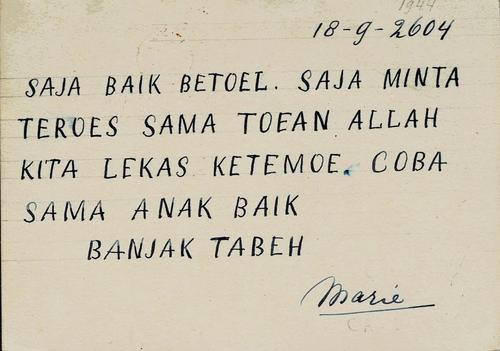 1944
18-9-2604
SAJA BAIK BETOEL. SAJA MINTA
TEROES SAMA TOEAN ALLAH
KITA LEKAS KETEMOE. COBA
SAMA ANAK BAIK
BANJAK TABEH
Marie